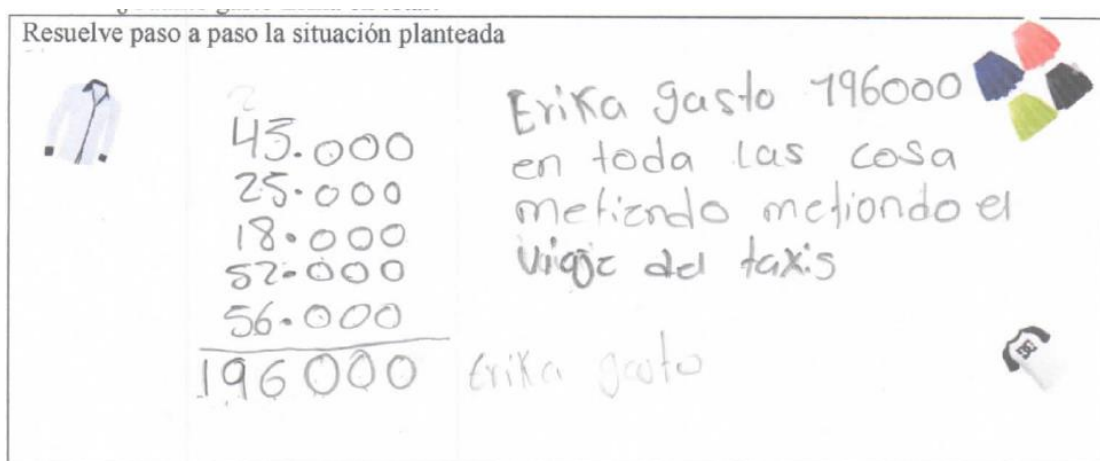 Resuelve paso a paso la situación planteada
2
45.000
25.000
18.000
52.000
56.000
196000
Erika gasto
Erika gasto 196000
en toda las cosa
metiendo metiondo el
viaje del taxis